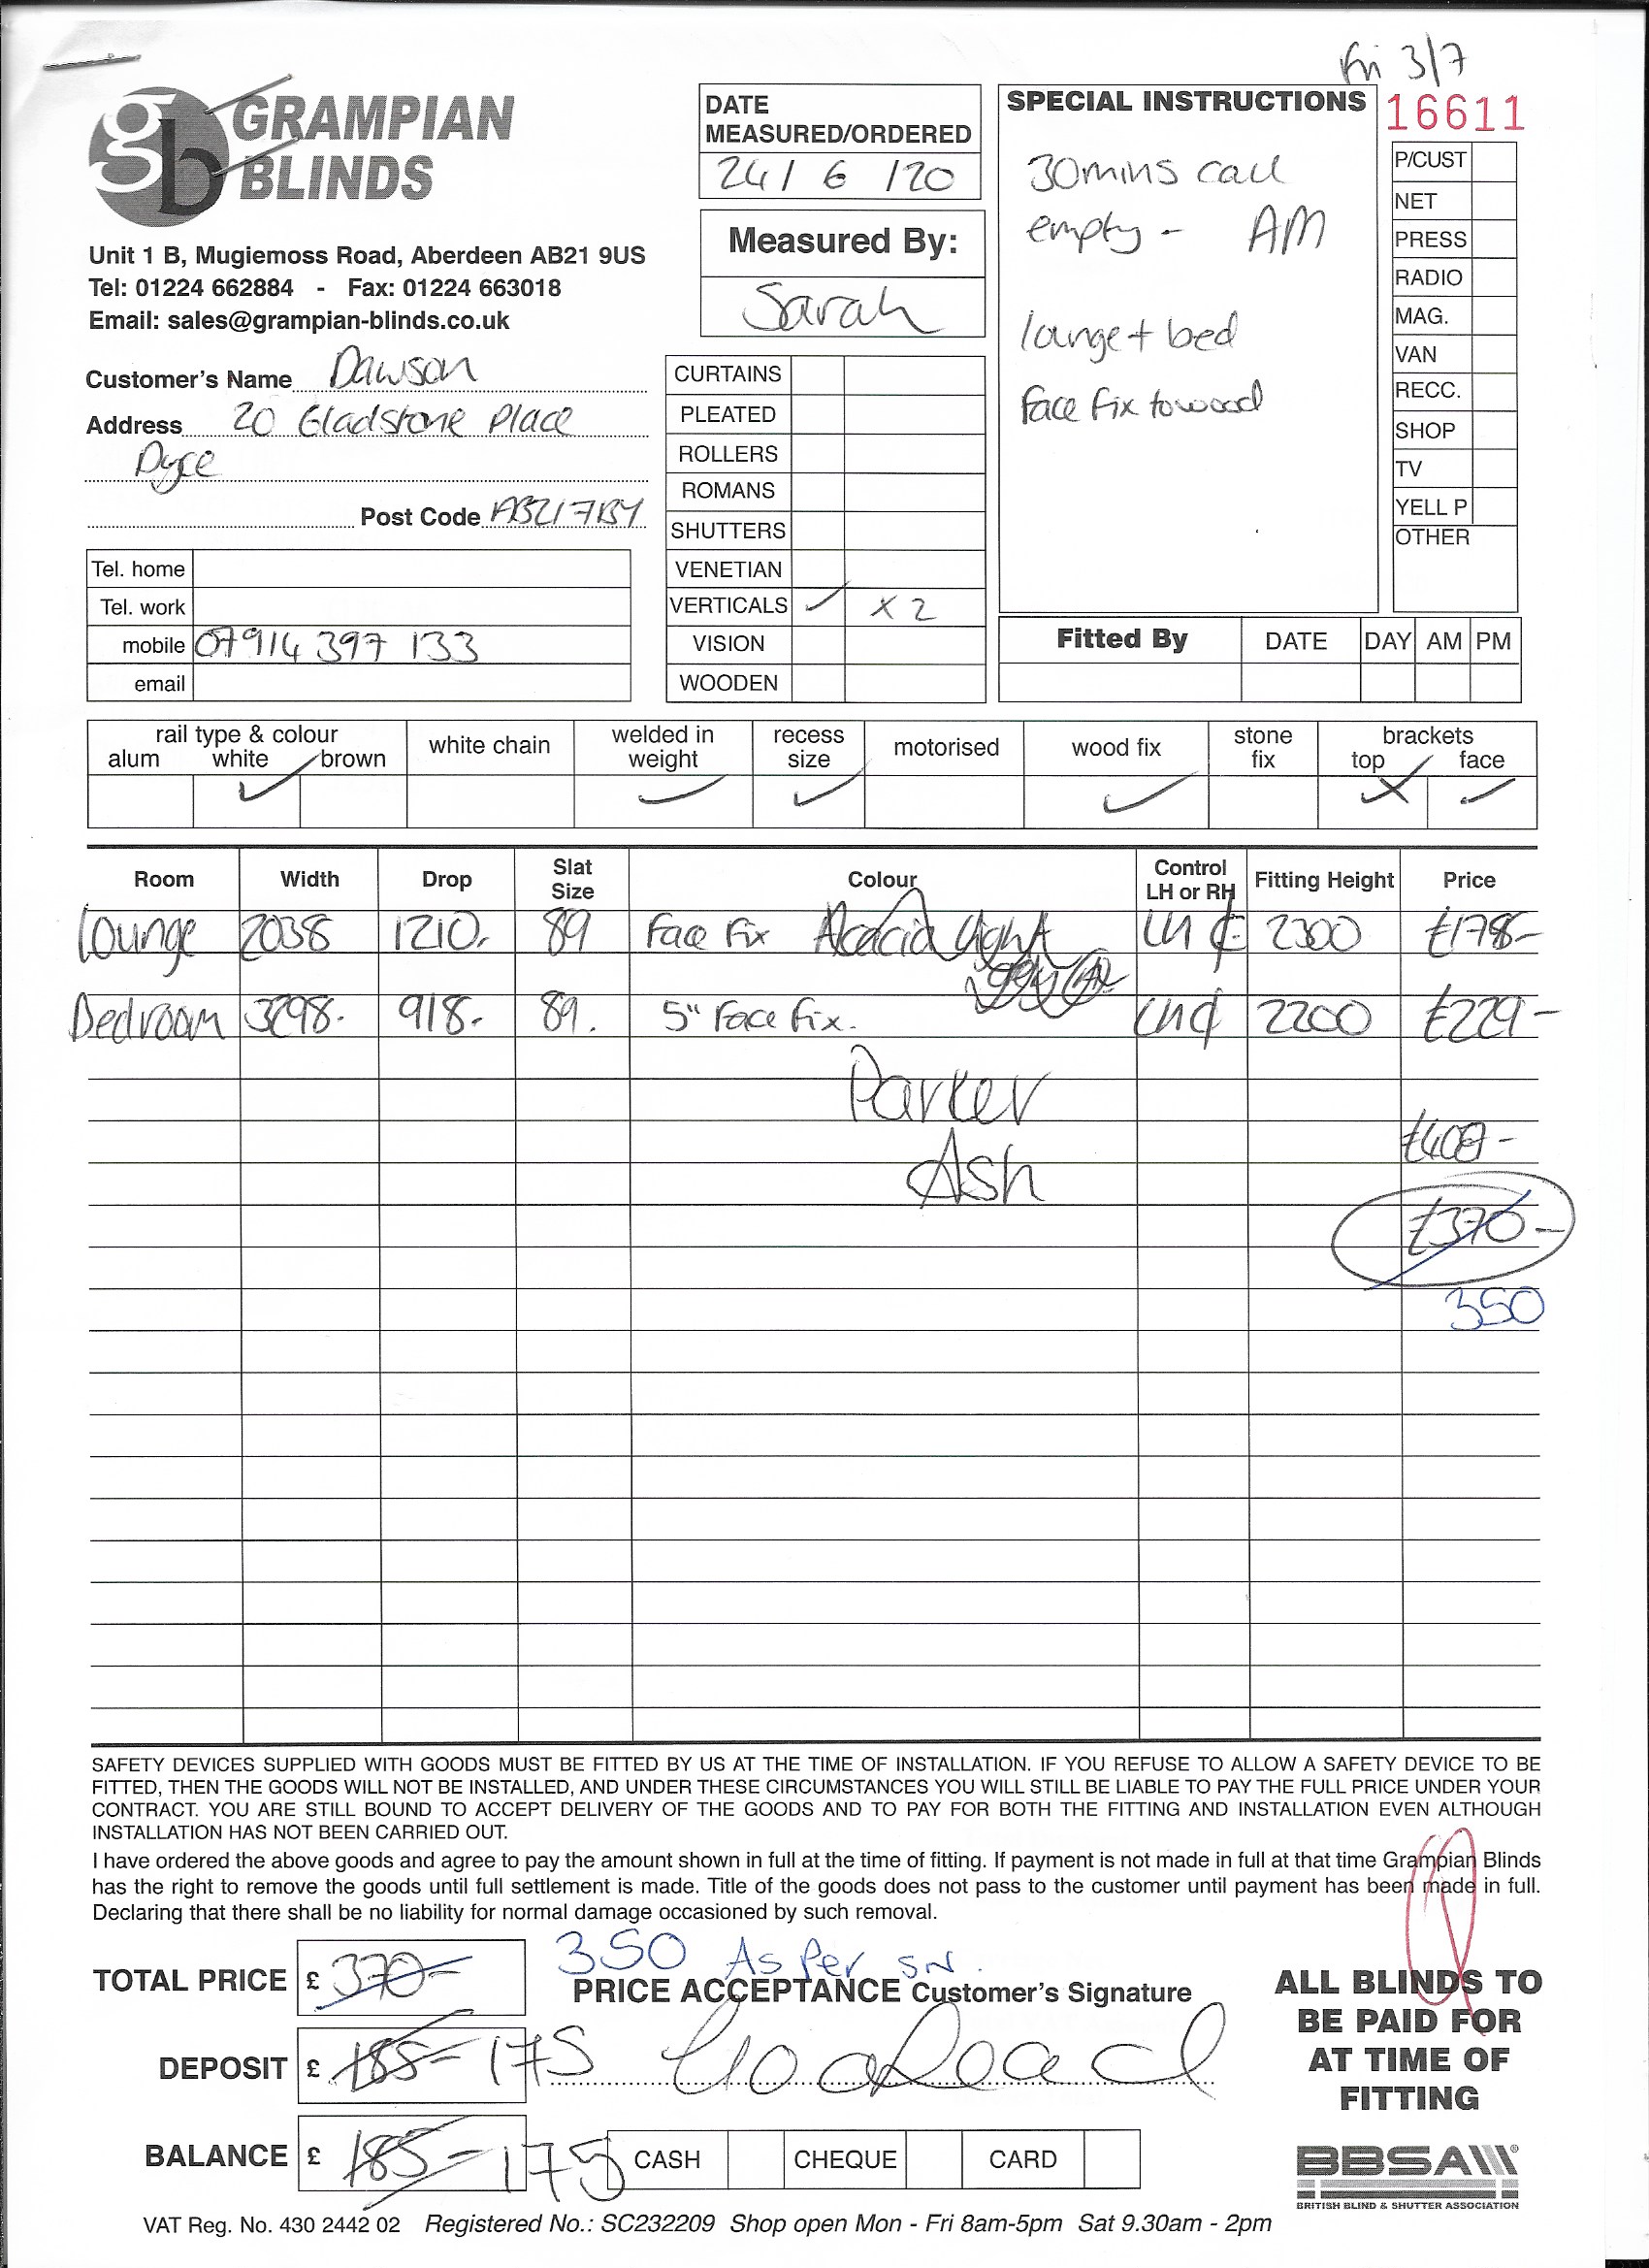 Fri 3/7
16611
gb GRAMPIAN
BLINDS
Unit 1 B, Mugiemoss Road, Aberdeen AB21 9US
Tel: 01224 662884 - Fax: 01224 663018
Email: sales@grampian-blinds.co.uk
Customer's Name Dawson
Address 20 Gladstone Place
Dyce
Post Code AB217BY
Tel. home
Tel. work
mobile 07914 397 133
email
DATE
MEASURED/ORDERED
24/6/20
Measured By:
Sarah
CURTAINS
PLEATED
ROLLERS
ROMANS
SHUTTERS
VENETIAN
VERTICALS ✓ x 2
VISION
WOODEN
SPECIAL INSTRUCTIONS
30mins call
empty - AM
lounge + bed
Face Fix to wood
P/CUST
NET
PRESS
RADIO
MAG.
VAN
RECC.
SHOP
TV
YELL P
OTHER
Fitted By DATE DAY AM PM
rail type & colour white chain welded in weight recess size motorised wood fix stone fix brackets
alum white brown top face
✓ ✓ ✓ ✓ X ✓
Room Width Drop Slat Size Colour Control LH or RH Fitting Height Price
Lounge 2038 1210. 89 Face Fix Acacia Light LH 2300 £178-
Bedroom 3298. 918. 89. 5" Face fix. LH 2200 £229-
Parker
Ash
£370-
350
SAFETY DEVICES SUPPLIED WITH GOODS MUST BE FITTED BY US AT THE TIME OF INSTALLATION. IF YOU REFUSE TO ALLOW A SAFETY DEVICE TO BE
FITTED, THEN THE GOODS WILL NOT BE INSTALLED, AND UNDER THESE CIRCUMSTANCES YOU WILL STILL BE LIABLE TO PAY THE FULL PRICE UNDER YOUR
CONTRACT. YOU ARE STILL BOUND TO ACCEPT DELIVERY OF THE GOODS AND TO PAY FOR BOTH THE FITTING AND INSTALLATION EVEN ALTHOUGH
INSTALLATION HAS NOT BEEN CARRIED OUT.
I have ordered the above goods and agree to pay the amount shown in full at the time of fitting. If payment is not made in full at that time Grampian Blinds
has the right to remove the goods until full settlement is made. Title of the goods does not pass to the customer until payment has been made in full.
Declaring that there shall be no liability for normal damage occasioned by such removal.
350 As Per SN.
TOTAL PRICE £ 370-
PRICE ACCEPTANCE Customer's Signature
DEPOSIT £ 185- 175
BALANCE £ 185- 175
CASH CHEQUE CARD
ALL BLINDS TO
BE PAID FOR
AT TIME OF
FITTING
BBSA
BRITISH BLIND & SHUTTER ASSOCIATION
VAT Reg. No. 430 2442 02 Registered No.: SC232209 Shop open Mon - Fri 8am-5pm Sat 9.30am - 2pm